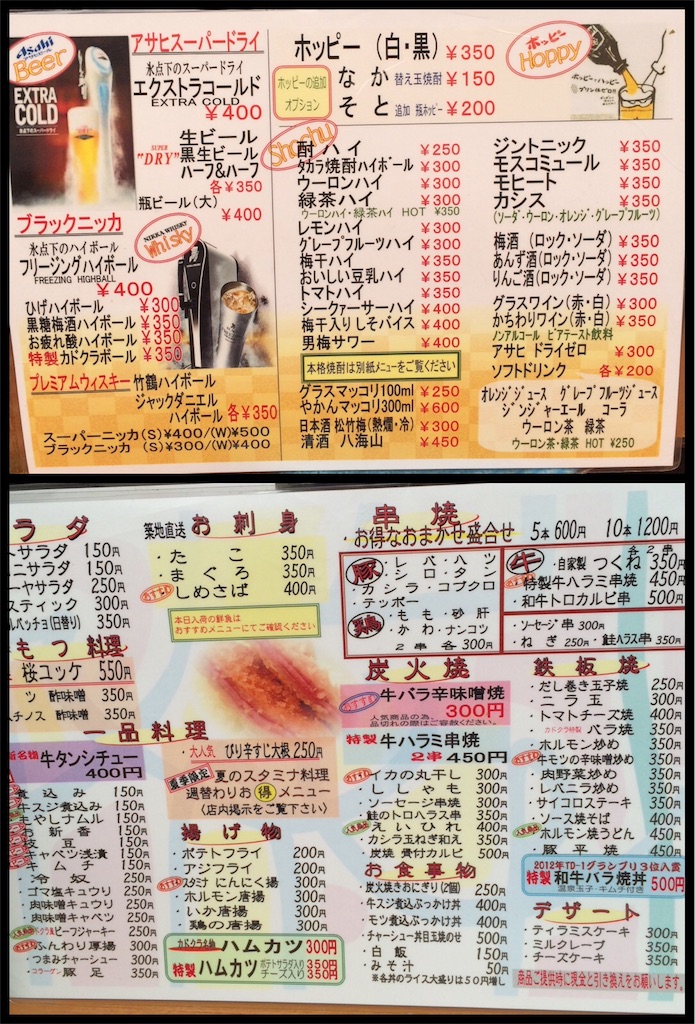 Asahi
Beer
EXTRA
COLD
氷点下のスーパードライ
アサヒスーパードライ
氷点下のスーパードライ
エクストラコールド
EXTRA COLD
¥400
生ビール
SUPER "DRY" 黒生ビール
ハーフ&ハーフ
各¥350
瓶ビール(大)
¥400
ブラックニッカ
NIKKA WHISKY
Whisky
氷点下のハイボール
フリージングハイボール
FREEZING HIGHBALL
¥400
ひげハイボール ¥300
黒糖梅酒ハイボール ¥350
お疲れ酸ハイボール ¥350
特製カドクラボール ¥350
プレミアムウィスキー 竹鶴ハイボール
ジャックダニエル
ハイボール 各¥350
スーパーニッカ(S)¥400/(W)¥500
ブラックニッカ(S)¥300/(W)¥400
ホッピー(白・黒) ¥350
ホッピーの追加
オプション
なか 替え玉焼酎 ¥150
そと 追加 瓶ホッピー ¥200
ホッピー
Hoppy
Shochu
酎ハイ ¥250
タカラ焼酎ハイボール ¥300
ウーロンハイ ¥300
緑茶ハイ ¥300
ウーロンハイ・緑茶ハイ HOT ¥350
レモンハイ ¥300
グレープフルーツハイ ¥300
梅干ハイ ¥350
おいしい豆乳ハイ ¥350
トマトハイ ¥350
シークァーサーハイ ¥400
梅干入りしそバイス ¥400
男梅サワー ¥400
本格焼酎は別紙メニューをご覧ください
グラスマッコリ100ml ¥250
やかんマッコリ300ml ¥600
日本酒 松竹梅(熱燗・冷) ¥300
清酒 八海山 ¥450
ジントニック ¥350
モスコミュール ¥350
モヒート ¥350
カシス ¥350
(ソーダ・ウーロン・オレンジ・グレープフルーツ)
梅酒(ロック・ソーダ) ¥350
あんず酒(ロック・ソーダ) ¥350
りんご酒(ロック・ソーダ) ¥350
グラスワイン(赤・白) ¥300
かちわりワイン(赤・白) ¥350
ノンアルコール ビアテースト飲料
アサヒ ドライゼロ ¥300
ソフトドリンク 各¥200
オレンジジュース グレープフルーツジュース
ジンジャーエール コーラ
ウーロン茶 緑茶
ウーロン茶・緑茶 HOT ¥250
ラダ
サラダ 150円
ニサラダ 150円
ーヤサラダ 250円
スティック 300円
ルパッチョ(日替り) 350円
もつ料理
桜ユッケ 550円
ツ 酢味噌 350円
チノス 酢味噌 350円
一品料理
牛タンシチュー
400円
煮込み 150円
牛スジ煮込み 150円
もやしナムル 150円
お新香 150円
枝豆 150円
キャベツ浅漬 150円
キムチ 150円
冷奴 250円
ゴマ塩キュウリ 250円
肉味噌キュウリ 250円
肉味噌キャベツ 250円
ビーフジャーキー 250円
ふんわり厚揚 300円
つまみチャーシュー 300円
コラーゲン 豚足 350円
築地直送 お刺身
・たこ 350円
・まぐろ 350円
しめさば 400円
本日入荷の鮮魚は
おすすめメニューにてご確認ください
・大人気 ぴり辛すじ大根 250円
夏季限定 夏のスタミナ料理
週替わりお得メニュー
〈店内掲示をご覧下さい〉
揚げ物
・ポテトフライ 200円
・アジフライ 200円
・スタミナ にんにく揚 300円
・ホルモン唐揚 300円
・いか唐揚 300円
・鶏の唐揚 300円
カドクラ名物 ハムカツ 300円
特製 ハムカツ ポテトサラダ入り 350円
チーズ入り 350円
串焼
・お得なおまかせ盛合せ 5本600円 10本1200円
豚 ・レバ・ハツ
・シロ・タン
・カシラ・コブクロ
・テッポー
鶏 ・もも・砂肝
・かわ・ナンコツ
2串 各300円
各2串
牛 ・自家製 つくね 350円
特製牛ハラミ串焼 450円
・和牛トロカルビ串 500円
・ソーセージ串 300円
・ねぎ 250円・鮭ハラス串 350円
炭火焼
牛バラ辛味噌焼
300円
人気商品の為、
品切れの際はご容赦ください。
特製 牛ハラミ串焼
2串450円
・イカの丸干し 300円
・ししゃも 300円
・ソーセージ串焼 300円
・鮭のトロハラス串 350円
・えいひれ 400円
・カシラ玉ねぎ和え 350円
・炭焼 骨付カルビ 500円
お食事物
・炭火焼きおにぎり(2個) 250円
・牛スジ煮込ぶっかけ丼 400円
・モツ煮込ぶっかけ丼 400円
・チャーシュー丼目玉焼のせ 500円
・白飯 150円
・みそ汁 50円
※各丼のライス大盛りは50円増し
鉄板焼
・だし巻き玉子焼 250円
・ニラ玉 300円
・トマトチーズ焼 400円
カドクラ特製 バラ焼 350円
・ホルモン炒め 350円
・牛モツの辛味噌炒め 350円
・肉野菜炒め 350円
・レバニラ炒め 350円
・サイコロステーキ 350円
・ソース焼そば 400円
・ホルモン焼うどん 450円
・豚平焼 450円
2012年TD-1グランプリ3位入賞
特製 和牛バラ焼丼 500円
温泉玉子・キムチ付き
デザート
・ティラミスケーキ 300円
・ミルクレープ 300円
・チーズケーキ 350円
商品ご提供時に現金と引き換えをお願いします。